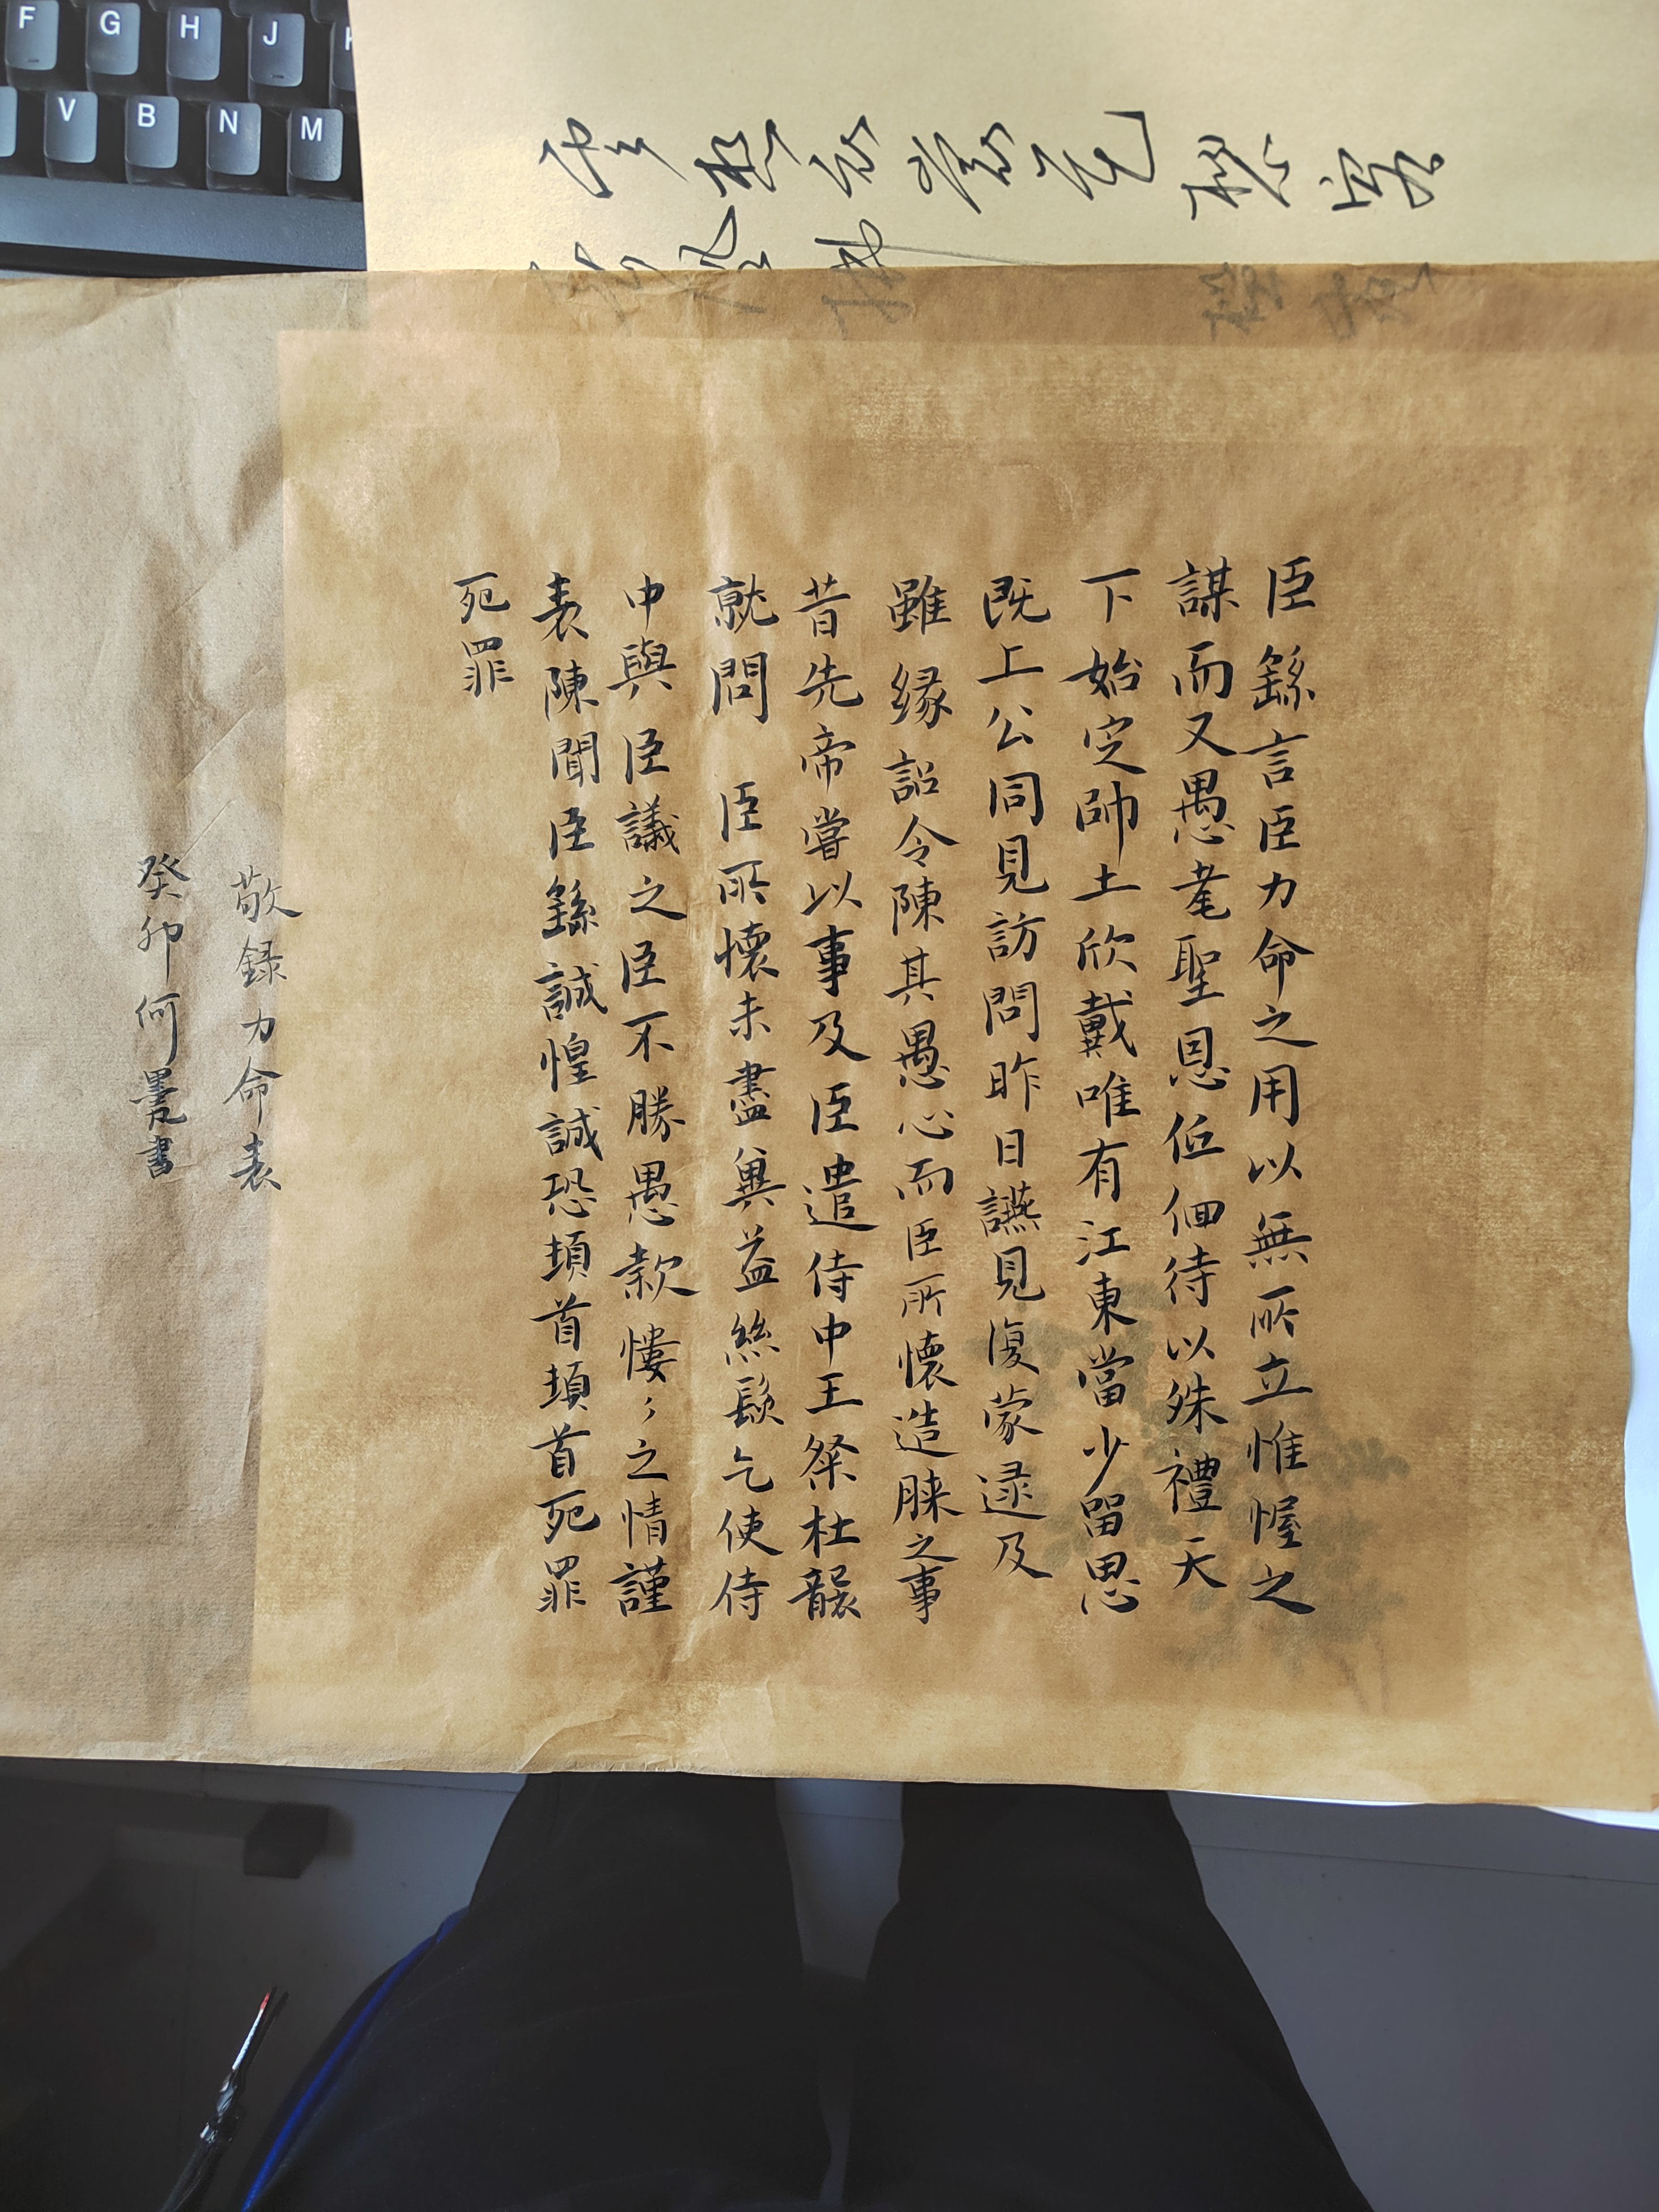 臣繇言臣力命之用以無所立惟幄之
謀而又愚耄聖恩低佪待以殊禮天
下始定帥土欣戴唯有江東當少留思
既上公同見訪問昨日讌見復蒙逮及
雖緣詔令陳其愚心而臣所懷造膝之事
昔先帝嘗以事及臣遣侍中王粲杜襲
就問 臣所懷未盡冀益絲髮乞使侍
中與臣議之臣不勝愚款慺〻之情謹
表陳聞臣繇誠惶誠恐頓首頓首死罪
死罪
敬録力命表
癸卯何書
F G H J
V B N M